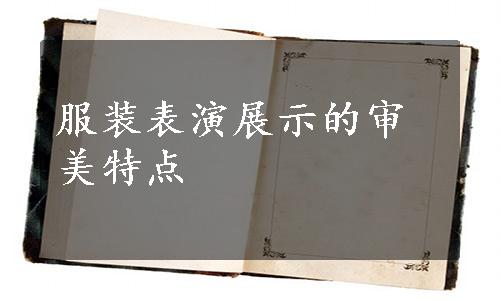 服装表演展示的审
美特点